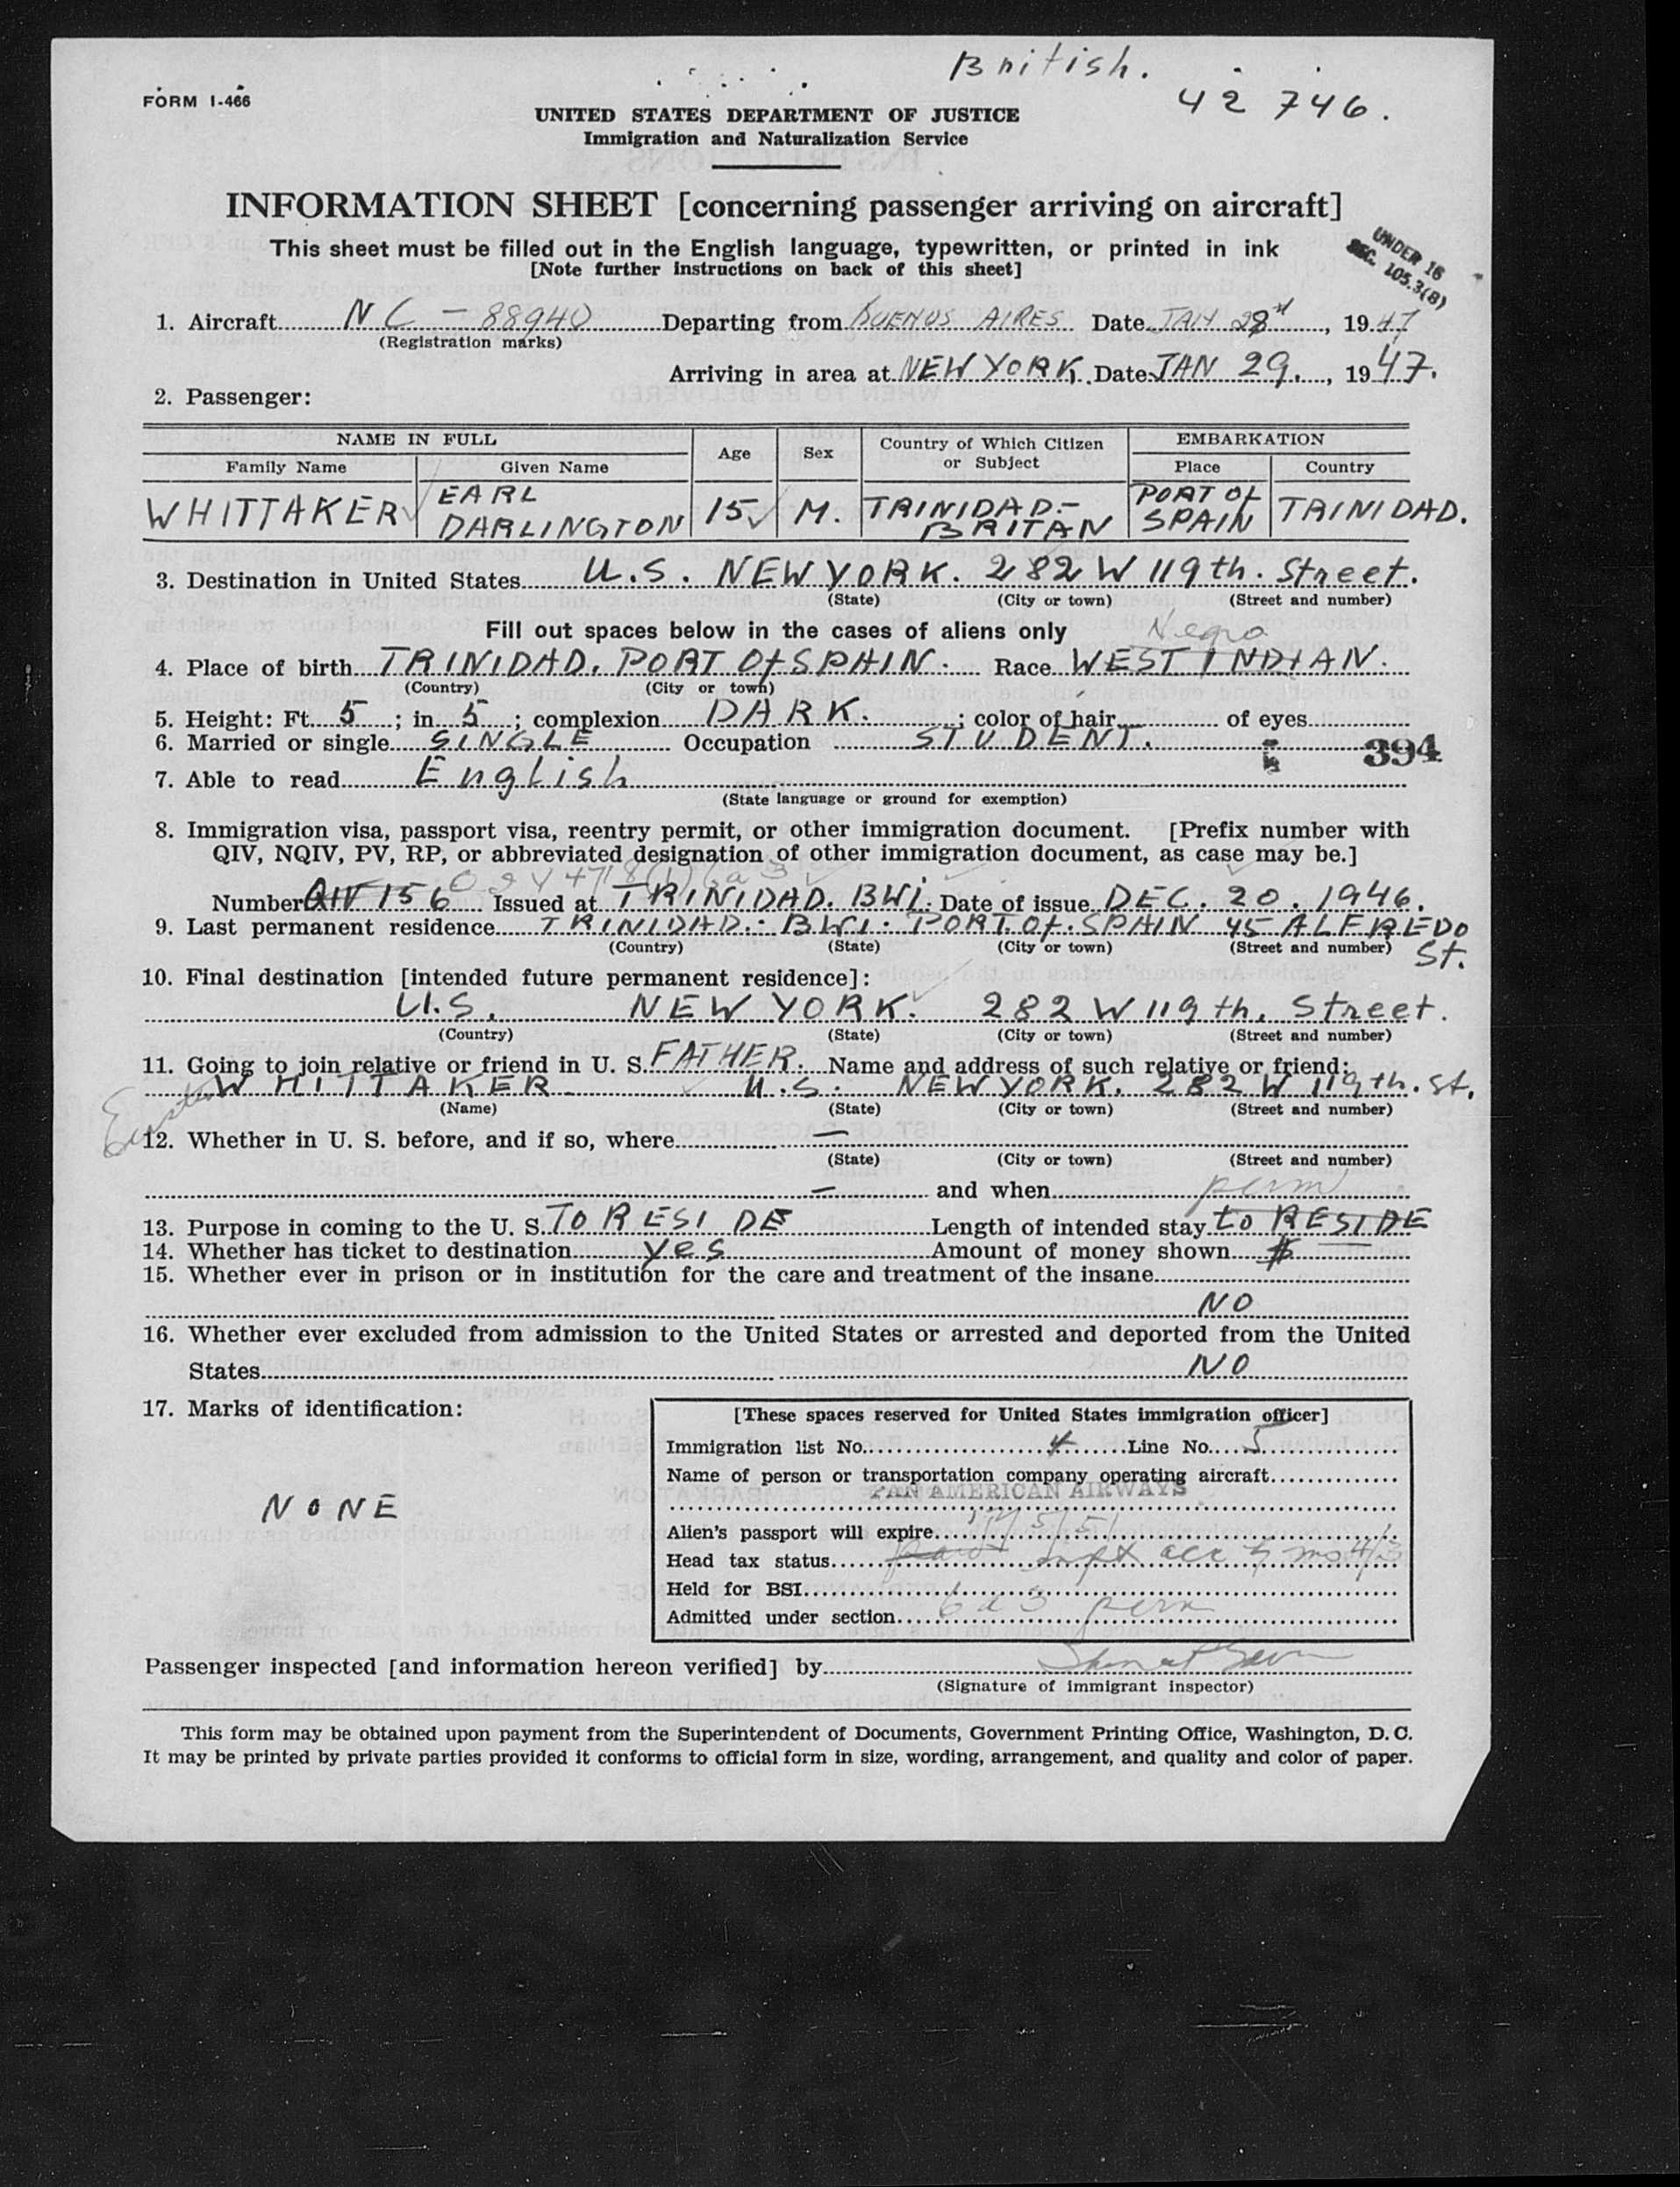 British.
42 746.
FORM I-466
UNITED STATES DEPARTMENT OF JUSTICE
Immigration and Naturalization Service
INFORMATION SHEET [concerning passenger arriving on aircraft]
This sheet must be filled out in the English language, typewritten, or printed in ink
[Note further instructions on back of this sheet]
UNDER 16
SEC. 105.3(8)
1. Aircraft NC - 88940 Departing from BUENOS AIRES Date JAN 28, 1947
(Registration marks)
Arriving in area at NEW YORK. Date JAN 29., 1947.
2. Passenger:
NAME IN FULL Age Sex Country of Which Citizen or Subject EMBARKATION
Family Name Given Name Place Country
WHITTAKER EARL DARLINGTON 15 M. TRINIDAD.- BRITAN PORT Of SPAIN TRINIDAD.
3. Destination in United States U.S. NEW YORK. 282 W 119th. Street.
(State) (City or town) (Street and number)
Fill out spaces below in the cases of aliens only
Negro
4. Place of birth TRINIDAD. PORT Of SPAIN. Race WEST INDIAN.
(Country) (City or town)
5. Height: Ft. 5; in. 5; complexion DARK.; color of hair of eyes
6. Married or single SINGLE Occupation STUDENT.
394
7. Able to read English
(State language or ground for exemption)
8. Immigration visa, passport visa, reentry permit, or other immigration document. [Prefix number with
QIV, NQIV, PV, RP, or abbreviated designation of other immigration document, as case may be.]
Number QIV 156 Issued at TRINIDAD. BWI. Date of issue DEC. 20. 1946.
9. Last permanent residence TRINIDAD. BWI. PORT Of. SPAIN 45 ALFREDO St.
(Country) (State) (City or town) (Street and number)
10. Final destination [intended future permanent residence]:
U.S. NEW YORK. 282 W 119th. Street.
(Country) (State) (City or town) (Street and number)
11. Going to join relative or friend in U. S. FATHER. Name and address of such relative or friend:
WHITTAKER U.S. NEW YORK. 282 W 119th. St.
(Name) (State) (City or town) (Street and number)
12. Whether in U. S. before, and if so, where —
(State) (City or town) (Street and number)
— and when
perm
13. Purpose in coming to the U. S. TO RESIDE Length of intended stay to RESIDE
14. Whether has ticket to destination Yes Amount of money shown $
15. Whether ever in prison or in institution for the care and treatment of the insane
NO
16. Whether ever excluded from admission to the United States or arrested and deported from the United
States NO
17. Marks of identification:
NONE
[These spaces reserved for United States immigration officer]
Immigration list No. 4 Line No. 5
Name of person or transportation company operating aircraft
PAN AMERICAN AIRWAYS
Alien's passport will expire
Head tax status
Held for BSI
Admitted under section 6 a 3 perm
Passenger inspected [and information hereon verified] by
(Signature of immigrant inspector)
This form may be obtained upon payment from the Superintendent of Documents, Government Printing Office, Washington, D. C.
It may be printed by private parties provided it conforms to official form in size, wording, arrangement, and quality and color of paper.